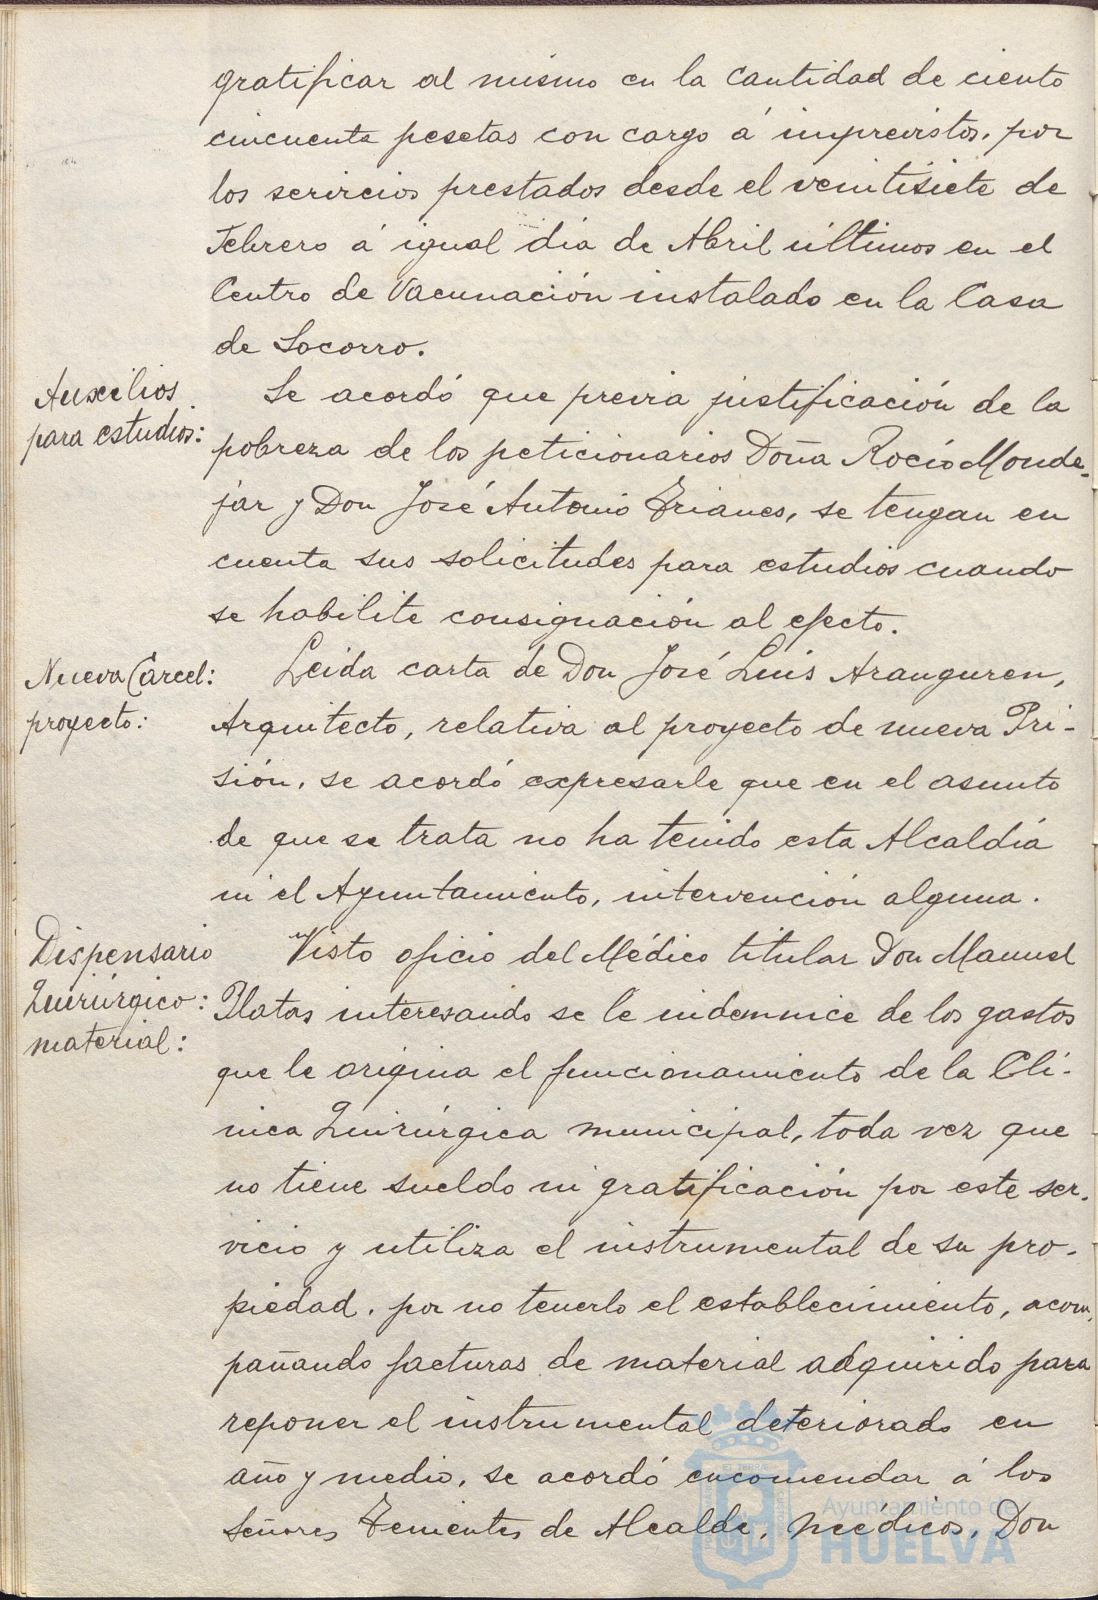 gratificar al mismo en la cantidad de ciento
cincuenta pesetas con cargo á imprevistos, por
los servicios prestados desde el veintisiete de
Febrero á igual dia de Abril últimos en el
Centro de Vacunación instalado en la Casa
de Socorro.
Auxilios
para estudios:
Se acordó que previa justificación de la
pobreza de los peticionarios Doña Rocío Monde-
jar y Don José Antonio Trianes, se tengan en
cuenta sus solicitudes para estudios cuando
se habilite consignación al efecto.
Nueva Cárcel:
proyecto:
Leida carta de Don José Luis Aranguren,
Arquitecto, relativa al proyecto de nueva Pri-
sión, se acordó expresarle que en el asunto
de que se trata no ha tenido esta Alcaldía
ni el Ayuntamiento, intervención alguna.
Dispensario
Quirúrgico:
material:
Visto oficio del Médico titular Don Manuel
Platas interesando se le indemnice de los gastos
que le origina el funcionamiento de la Clí-
nica Quirúrgica municipal, toda vez que
no tiene sueldo ni gratificación por este ser-
vicio y utiliza el instrumental de su pro-
piedad, por no tenerlo el establecimiento, acom-
pañando facturas de material adquirido para
reponer el instrumental deteriorado en
año y medio, se acordó encomendar á los
Señores Tenientes de Alcalde, médicos, Don
Ayuntamiento de
HUELVA